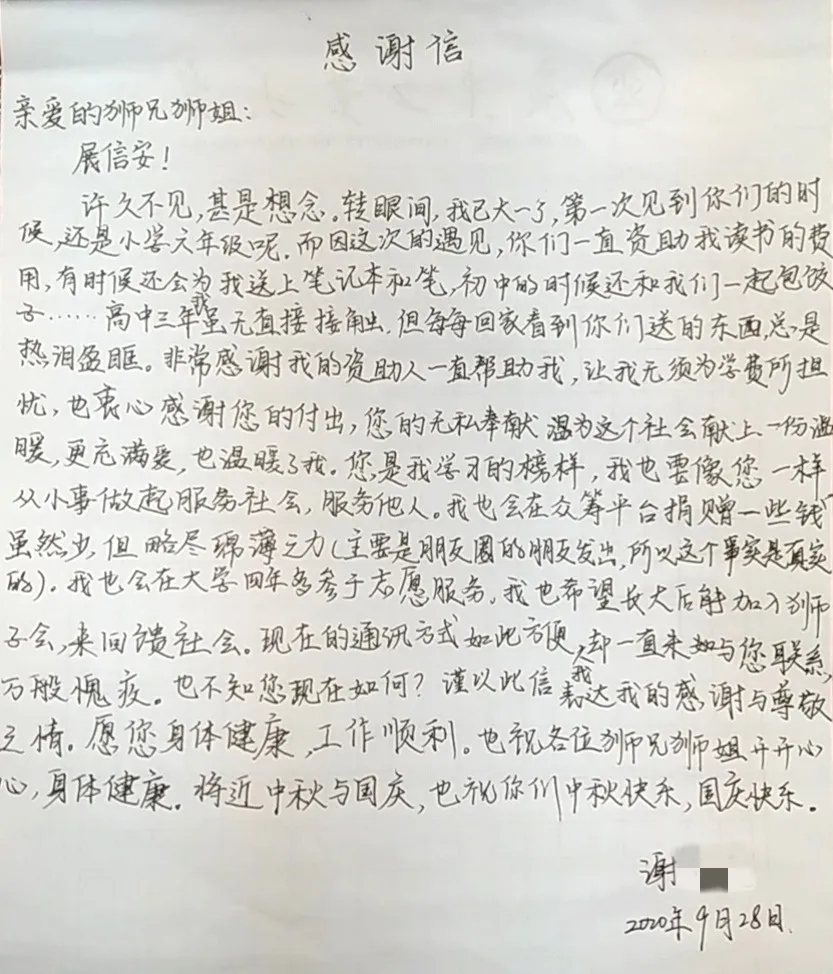 感谢信
亲爱的狮兄狮姐：
展信安！
许久不见，甚是想念。转眼间，我已大一了，第一次见到你们的时
候，还是小学六年级呢。而因这次的遇见，你们一直资助我读书的费
用，有时候还会为我送上笔记本和笔，初中的时候还和我们一起包饺
子……高中三年我虽无直接接触，但每每回家看到你们送的东西，总是
热泪盈眶。非常感谢我的资助人一直帮助我，让我无须为学费所担
忧，也衷心感谢您的付出，您的无私奉献温为这个社会献上一份温
暖，更充满爱，也温暖了我。您是我学习的榜样，我也要像您一样
从小事做起服务社会，服务他人。我也会在众筹平台捐赠一些钱
虽然少，但略尽绵薄之力（主要是朋友圈的朋友发出，所以这个事实是真实
的）。我也会在大学四年多参于志愿服务。我也希望长大后能加入狮师
子会，来回馈社会。现在的通讯方式如此方便，却一直未如与您联系，
万般愧疚。也不知您现在如何？谨以此信我表达我的感谢与尊敬
之情。愿您身体健康，工作顺利。也祝各位狮师兄狮师姐开开心
心，身体健康。将近中秋与国庆，也祝你们中秋快乐，国庆快乐。
谢
2020年9月28日.